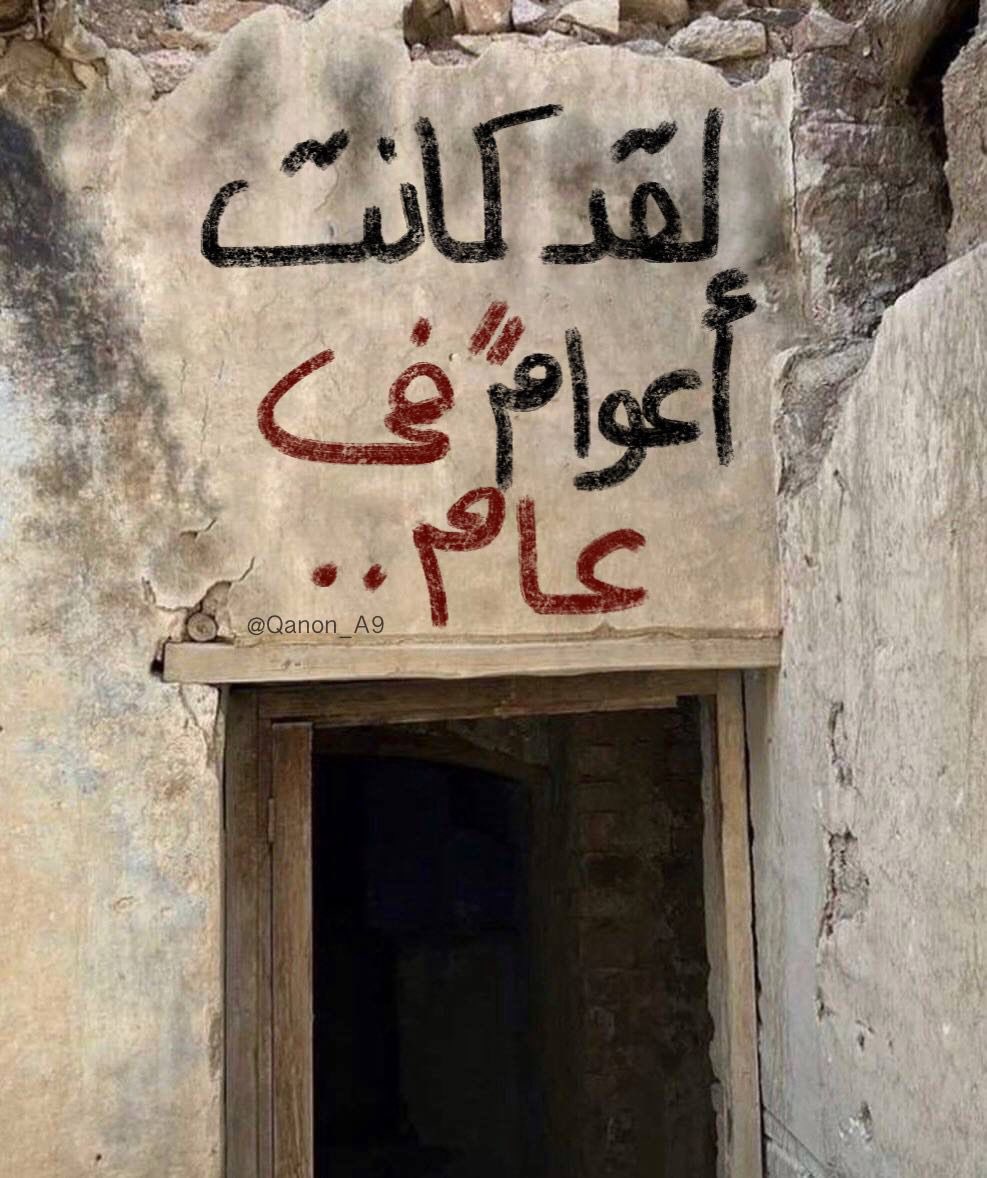 لقد كانت
أعوامًا في
عام ..
@Qanon_A9